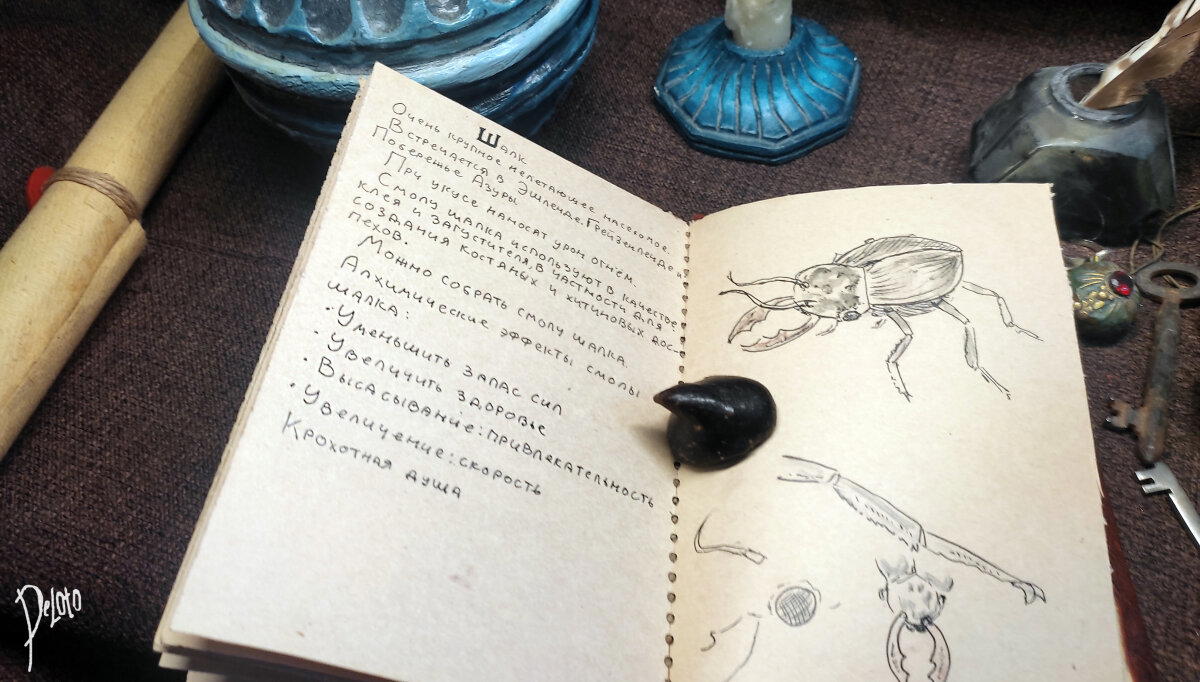 Шалк
Очень крупное нелетающее насекомое.
Встречается в Эшленде, Грейзенленде и
Побережье Азуры.
При укусе наносят урон огнём.
Смолу шалка используют в качестве
клея и загустителя, в частности для
создания костяных и хитиновых дос-
пехов.
Можно собрать смолу шалка.
Алхимические эффекты смолы
шалка:
· Уменьшить запас сил
· Увеличить здоровье
· Высасывание: привлекательность
· Увеличение: скорость
Крохотная душа
DeLoto